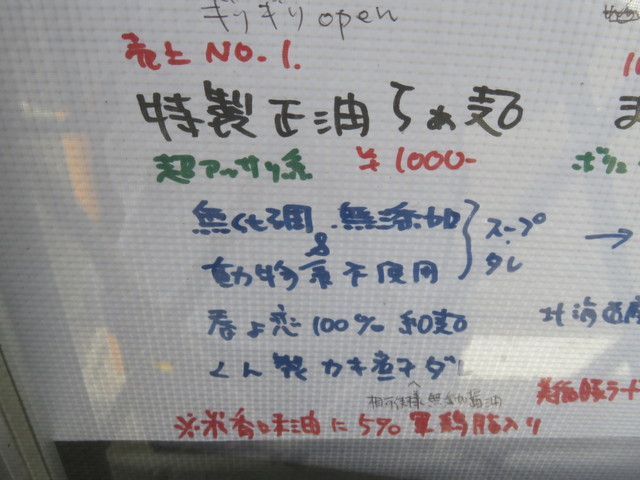 ギリギリopen
売上 NO.1.
特製正油らぁ麺
超アッサリ系 ¥1000-
無化調.無添加
&
動物系不使用
スープ・タレ
→
春よ恋100%细麺
くん製カキ煮干ダレ
無添加醤油
※米香味油に5%軍鶏脂入り
10
ま
ボリュ
北海道産
美福豚ラード